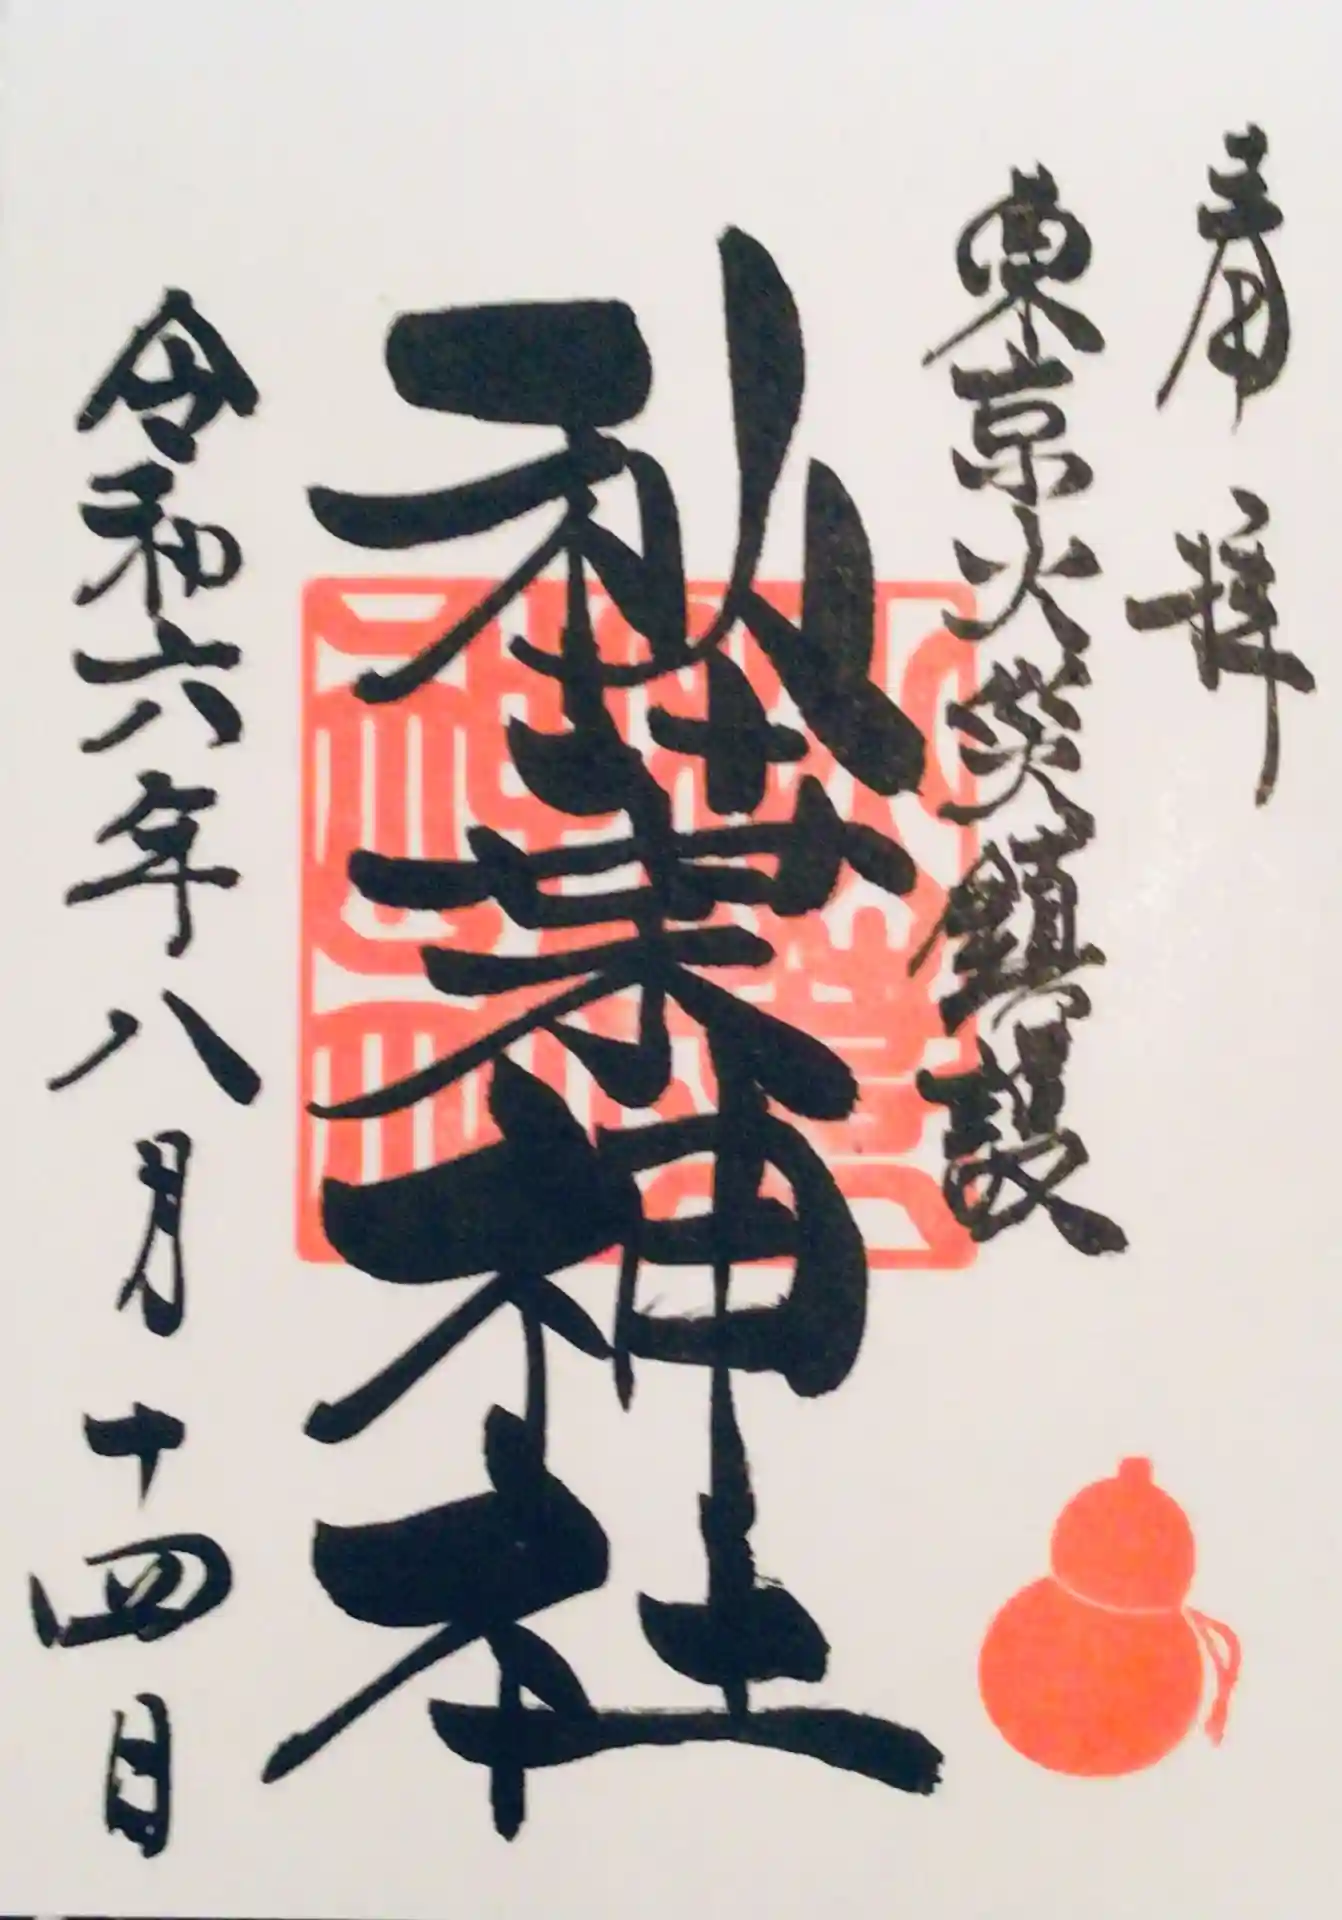 奉拝
東京火災鎮護
秋葉神社
令和六年八月十四日